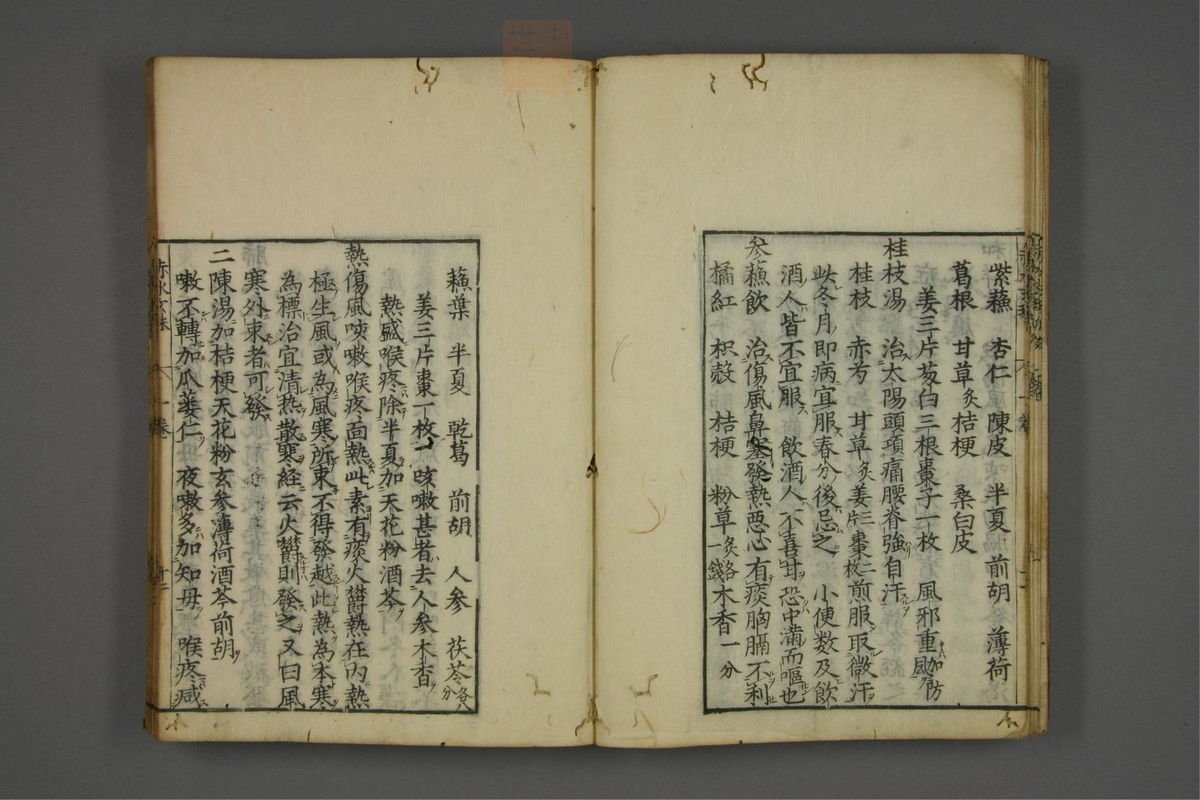 紫蘓 杏仁 陳皮 半夏 前胡 薄荷
葛根 甘草炙 桔梗 桑白皮
姜三片葱白三根棗子一枚 風邪重加防風
桂枝湯 治太陽頭項痛腰脊強自汗
桂枝 赤芍 甘草炙 姜三片 棗二枚 煎服取微汗
此冬月即病宜服春分後忌之 小便数及飲
酒人皆不宜服 飲酒人不喜甘恐中滿而嘔也
参蘓飲 治傷風鼻塞發熱惡心有痰胸膈不利
橘紅 枳殼 桔梗 粉草炙各一錢 木香一分
蘓葉 半夏 乾葛 前胡 人参 茯苓各八分
姜三片棗一枚 咳嗽甚者去人参木香
熱盛喉疼除半夏加天花粉酒芩
熱傷風咳嗽喉疼面熱此素有痰火欝熱在内熱
極生風或為風寒所束不得發越此熱為本寒
為標治宜清熱散寒経云火欝則發之又曰風
寒外束者可發
二陳湯加桔梗天花粉玄参薄荷酒芩前胡
嗽不轉加瓜蔞仁 夜嗽多加知母 喉疼
赤水玄珠
一卷